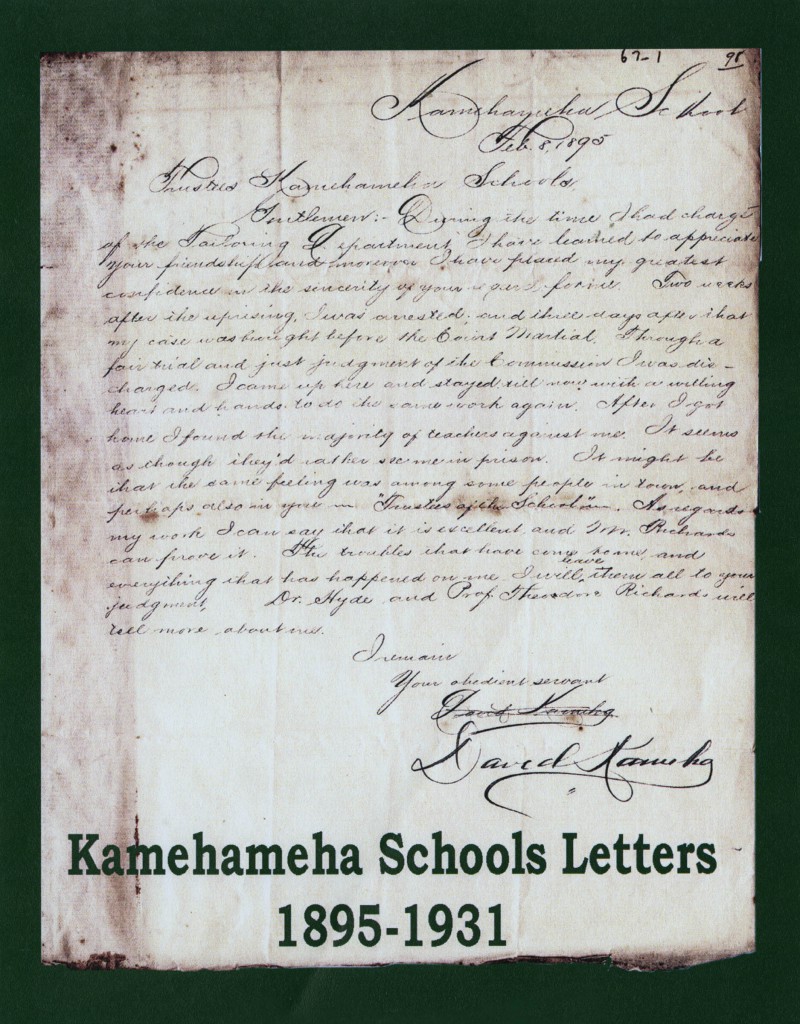 67-1 95
Kamehameha School
Feb. 8, 1895
Trustees Kamehameha Schools,
Gentlemen:- During the time I had charge
of the Tailoring Department I have learned to appreciate
your friendship and moreover I have placed my greatest
confidence in the sincerity of your regard for me. Two weeks
after the uprising, I was arrested, and three days after that
my case was brought before the Court Martial. Through a
fair trial and just judgment of the Commission I was dis-
charged. I came up here and stayed till now with a willing
heart and hands to do the same work again. After I got
home I found the majority of teachers against me. It seems
as though they'd rather see me in prison. It might be
that the same feeling was among some people in town, and
perhaps also in you "Trustees of the School". As regards
my work I can say that it is excellent, and Mr. Richards
can prove it. The troubles that have come home, and
everything that has happened on me I will leave them all to your
judgment, Dr. Hyde and Prof. Theodore Richards will
tell more about me.
I remain
Your obedient servant
David Kameha
David Kameha
Kamehameha Schools Letters
1895-1931